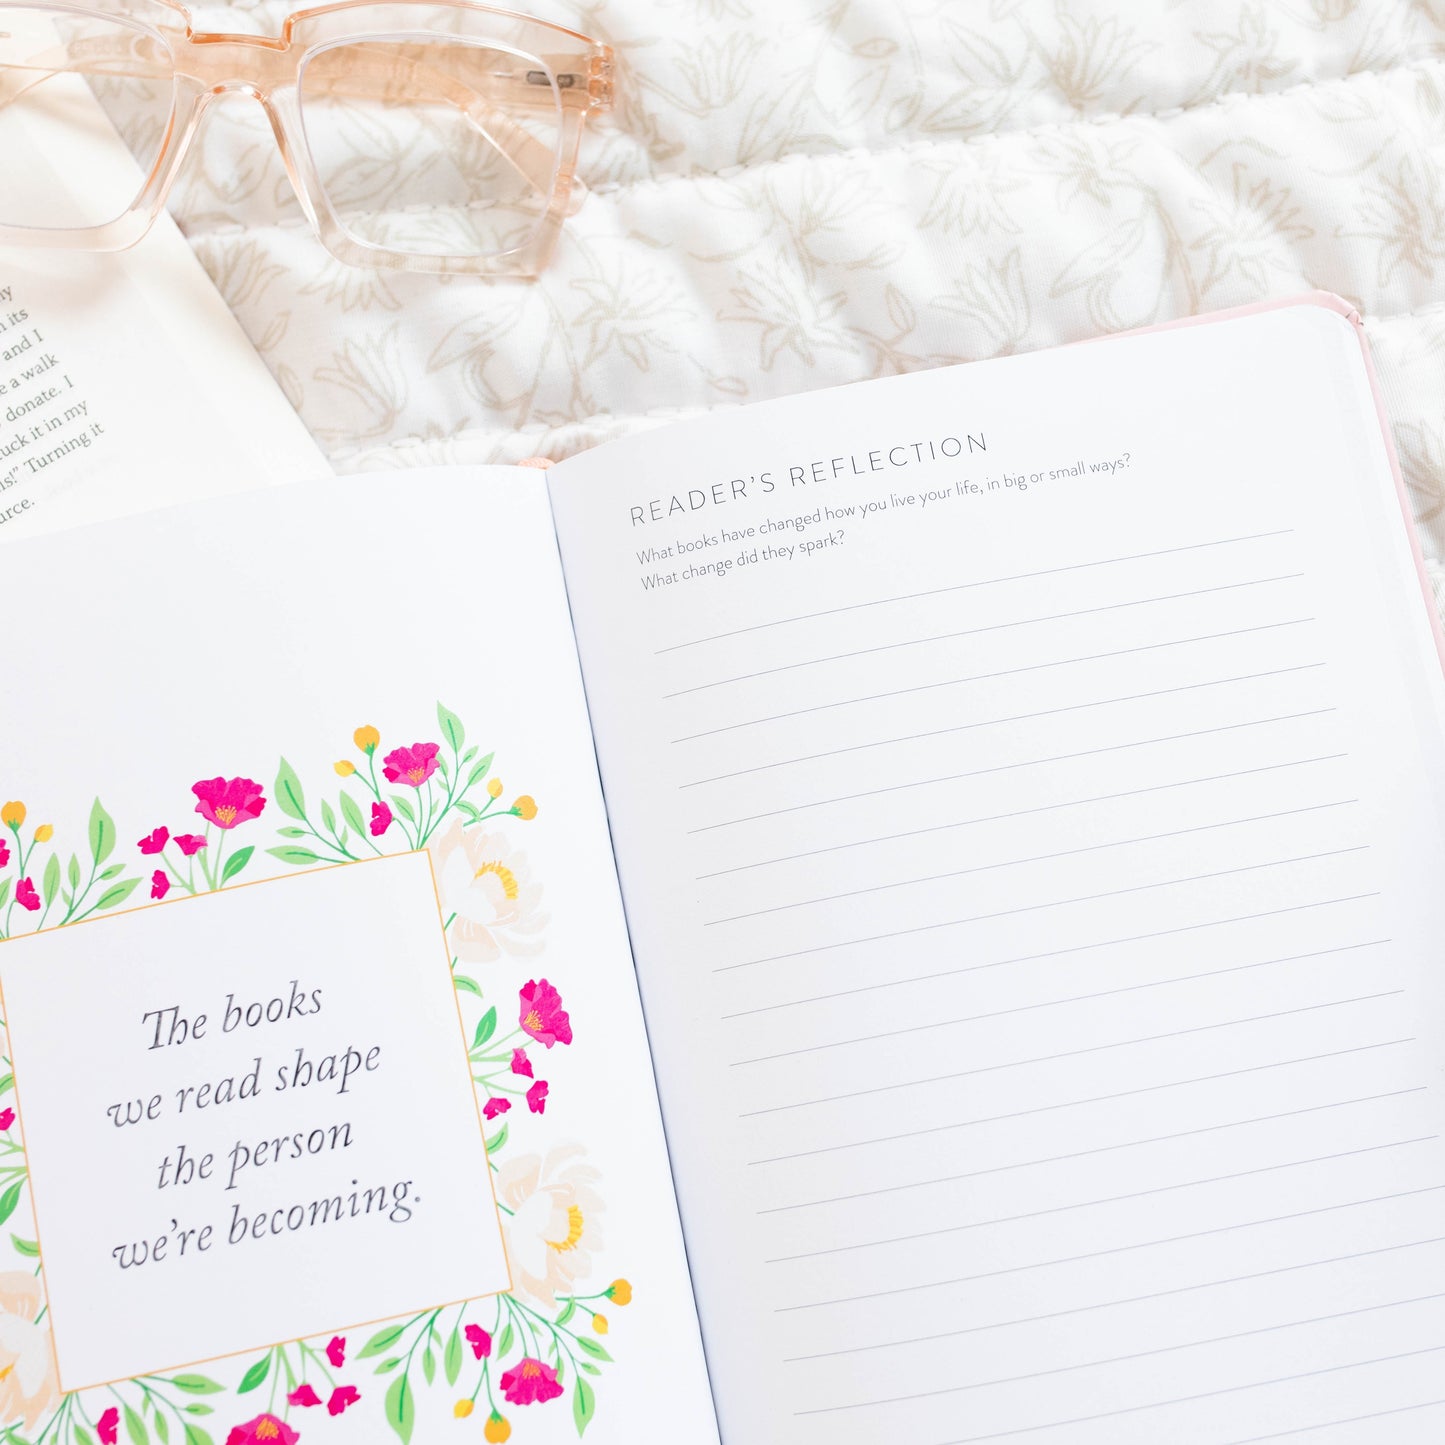 ny
n its
and I
e a walk
donate. I
uck it in my
ns!" Turning it
urce.
READER'S REFLECTION
What books have changed how you live your life, in big or small ways?
What change did they spark?
The books
we read shape
the person
we're becoming.